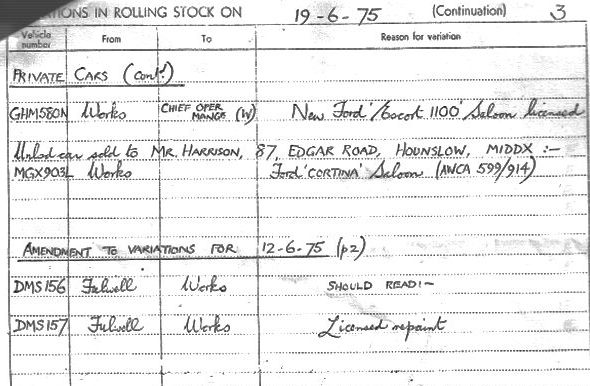 ATIONS IN ROLLING STOCK ON 19-6-75 (Continuation) 3
Vehicle number From To Reason for variation
PRIVATE CARS (cont!)
GHM580N Works CHIEF OPER MANGR (W) New Ford 'Escort 1100' Saloon licensed
car sold to MR. HARRISON, 87, EDGAR ROAD, HOUNSLOW, MIDDX :-
MGX903L Works Ford 'CORTINA' Saloon (ANCA 599/914)
AMENDMENT TO VARIATIONS FOR 12-6-75 (p2)
DMS156 Fulwell Works SHOULD READ:-
DMS157 Fulwell Works Licensed repaint